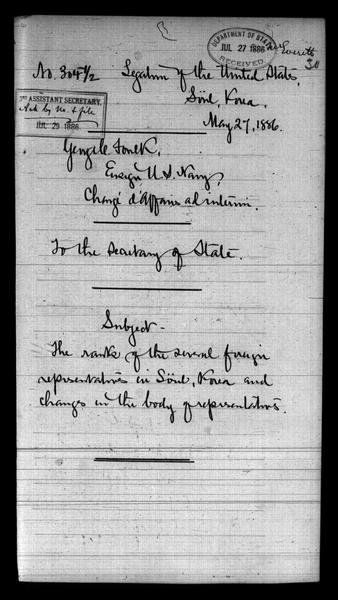 DEPARTMENT OF STATE
JUL 27 1886
RECEIVED
Mr Everett
No. 304 1/2 Legation of the United States,
Söul, Korea,
May 27, 1886.
3RD ASSISTANT SECRETARY,
Ack by No. & file
JUL 29 1886
George C. Foulk,
Ensign U.S. Navy,
Chargé d'Affaires ad interim.
To the Secretary of State.
Subject-
The rank of the several foreign
representatives in Söul, Korea and
changes in the body of representatives.